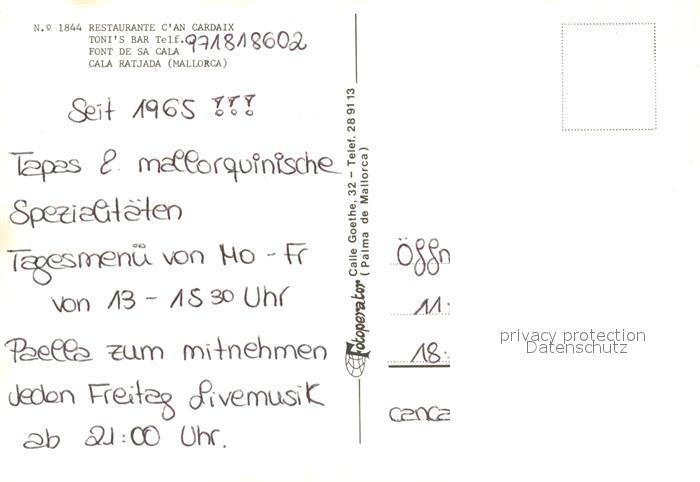 N.º 1844 RESTAURANTE C'AN CARDAIX
TONI'S BAR Telf. 971818602
FONT DE SA CALA
CALA RATJADA (MALLORCA)
Seit 1965 !!!
Tapas & mallorquinische
Spezialitäten
Tagesmenü von Mo - Fr
von 13 - 15 30 Uhr
Paella zum mitnehmen
Jeden Freitag Livemusik
ab 21:00 Uhr.
Fotoperator Calle Goethe, 32 – Telef. 28 91 13
(Palma de Mallorca)
Öffn
11:
18:
canca
privacy protection
Datenschutz